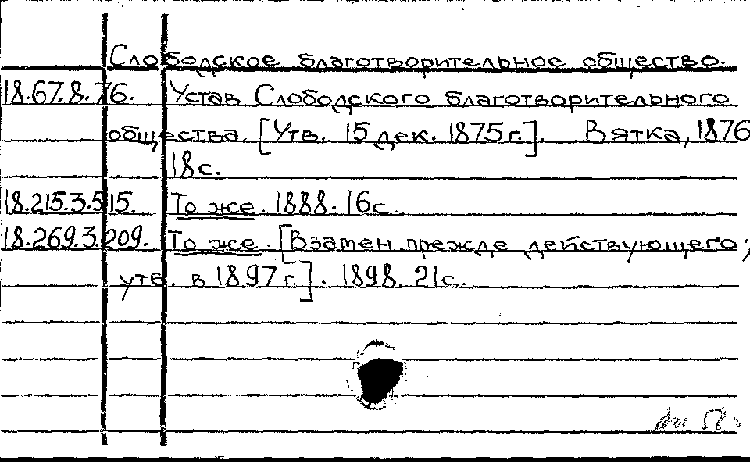 Слободское благотворительное общество.
18.67.8.76. Устав Слободского благотворительного
общества. [Утв. 15 дек. 1875 г.]. Вятка, 1876
18 с.
18.215.3.515. То же. 1888. 16 с.
18.269.3.209. То же. [Взамен прежде действующего;
утв. в 1897 г.]. 1898. 21 с.